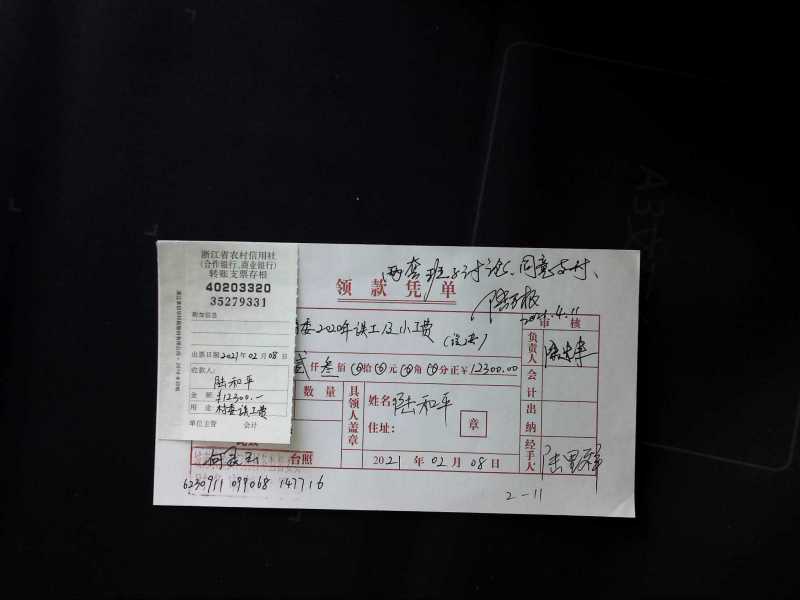 浙江省农村信用社
(合作银行、商业银行)
转账支票存根
40203320
35279331
附加信息
出票日期2021年02月08日
收款人:
陆和平
金 额:¥12300.—
用 途:村委误工费
单位主管 会计
两套班子讨论、同意支付、
2021.4.11
领款凭单
委2020年误工及小工费
审核
贰仟叁佰0拾0元0角0分正¥12300.00
负责人
会计
出纳
经手人
数量
具领人盖章
姓名 陆和平
住址:
章
台照
2021年02月08日
6230911 099068 147716
2-11
A3